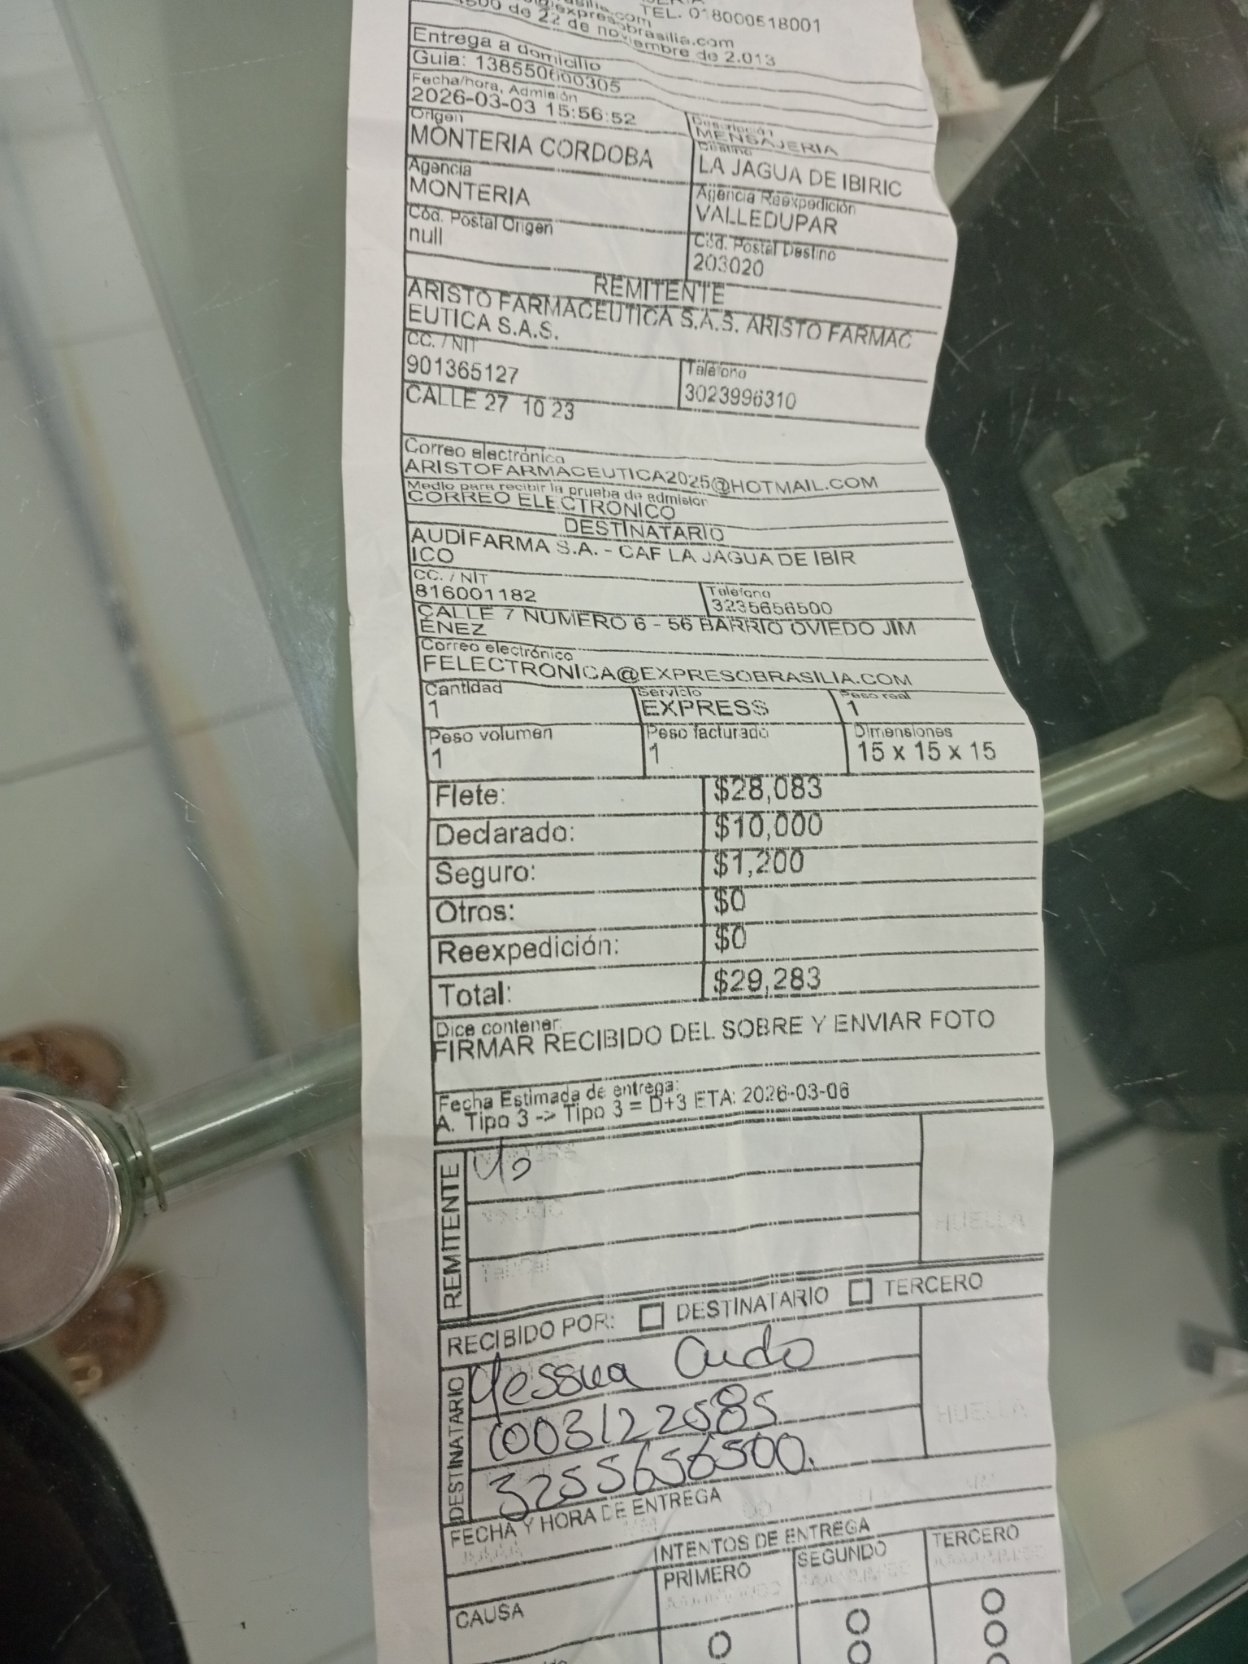 TEL. 018000518001
expresobrasilia.com
de 22 de noviembre de 2.013
Entrega a domicilio
Guia: 138550600305
Fecha/hora, Admisión
2026-03-03 15:56:52
Descripción
MENSAJERIA
Origen
MONTERIA CORDOBA
Destino
LA JAGUA DE IBIRIC
Agencia
MONTERIA
Agencia Reexpedición
VALLEDUPAR
Cód. Postal Origen
null
Cód. Postal Destino
203020
REMITENTE
ARISTO FARMACEUTICA S.A.S. ARISTO FARMAC
EUTICA S.A.S.
CC. / NIT
901365127
Teléfono
3023996310
CALLE 27 10 23
Correo electrónico
ARISTOFARMACEUTICA2025@HOTMAIL.COM
Medio para recibir la prueba de admisión
CORREO ELECTRONICO
DESTINATARIO
AUDIFARMA S.A. - CAF LA JAGUA DE IBIR
ICO
CC. / NIT
816001182
Telefono
3235656500
CALLE 7 NUMERO 6 - 56 BARRIO OVIEDO JIM
ENEZ
Correo electrónico
FELECTRONICA@EXPRESOBRASILIA.COM
Cantidad
1
Servicio
EXPRESS
Peso real
1
Peso volumen
1
Peso facturado
1
Dimensiones
15 x 15 x 15
Flete: $28,083
Declarado: $10,000
Seguro: $1,200
Otros: $0
Reexpedición: $0
Total: $29,283
Dice contener:
FIRMAR RECIBIDO DEL SOBRE Y ENVIAR FOTO
Fecha Estimada de entrega:
A. Tipo 3 -> Tipo 3 = D+3 ETA: 2026-03-06
REMITENTE
HUELLA
RECIBIDO POR: DESTINATARIO TERCERO
DESTINATARIO
1003122585
3235656500.
HUELLA
FECHA Y HORA DE ENTREGA
INTENTOS DE ENTREGA
CAUSA
PRIMERO
SEGUNDO
TERCERO